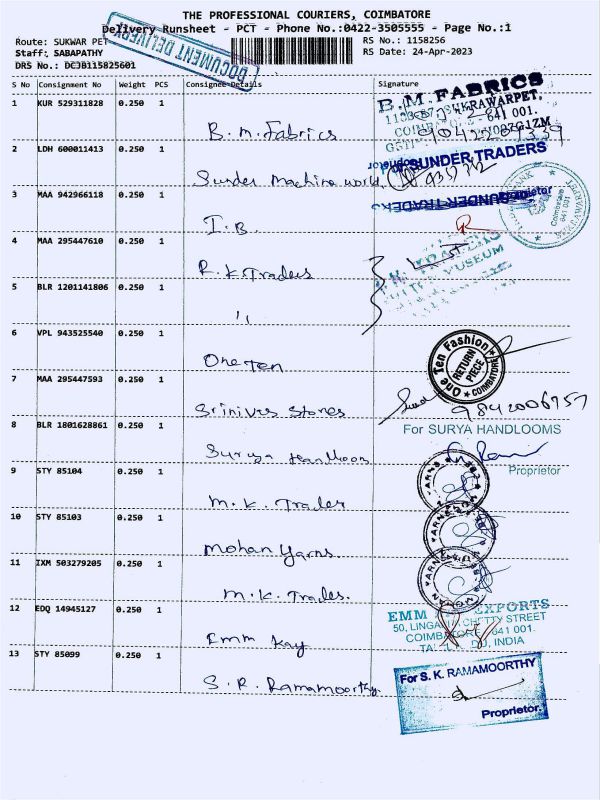 THE PROFESSIONAL COURIERS, COIMBATORE
Delivery Runsheet - PCT - Phone No.:0422-3505555 - Page No.:1
Route: SUKWAR PET
RS No.: 1158256
Staff: SABAPATHY
RS Date: 24-Apr-2023
DRS No.: DCJB115825601
DOCUMENT DELIVERY
S No Consignment No Weight PCS Consignee Details Signature
1 KUR 529311828 0.250 1 B. M. Fabrics
B.M. FABRICS
641 001.
2 LDH 600011413 0.250 1 Sunder Machine world
SUNDER TRADERS
3 MAA 942966118 0.250 1 I. B.
Coimbatore
641 001
4 MAA 295447610 0.250 1 R. K Traders
5 BLR 1201141806 0.250 1 ''
6 VPL 943525540 0.250 1 One Ten
One Ten Fashion
RETURN
PIECE
COIMBATORE
7 MAA 295447593 0.250 1 Srinivas Stores
8 BLR 1801628861 0.250 1 Surya Handloom
For SURYA HANDLOOMS
Proprietor
9 STY 85104 0.250 1 M. K. Trader
10 STY 85103 0.250 1 Mohan Yarns.
YARNS
11 IXM 503279205 0.250 1 M. K. Trades.
12 EDQ 14945127 0.250 1 Emm Kay
EMM EXPORTS
50, LINGA CHETTY STREET
COIMBATORE 641 001.
INDIA
13 STY 85099 0.250 1 S. R. Ramamoorthy
For S. K. RAMAMOORTHY
Proprietor.